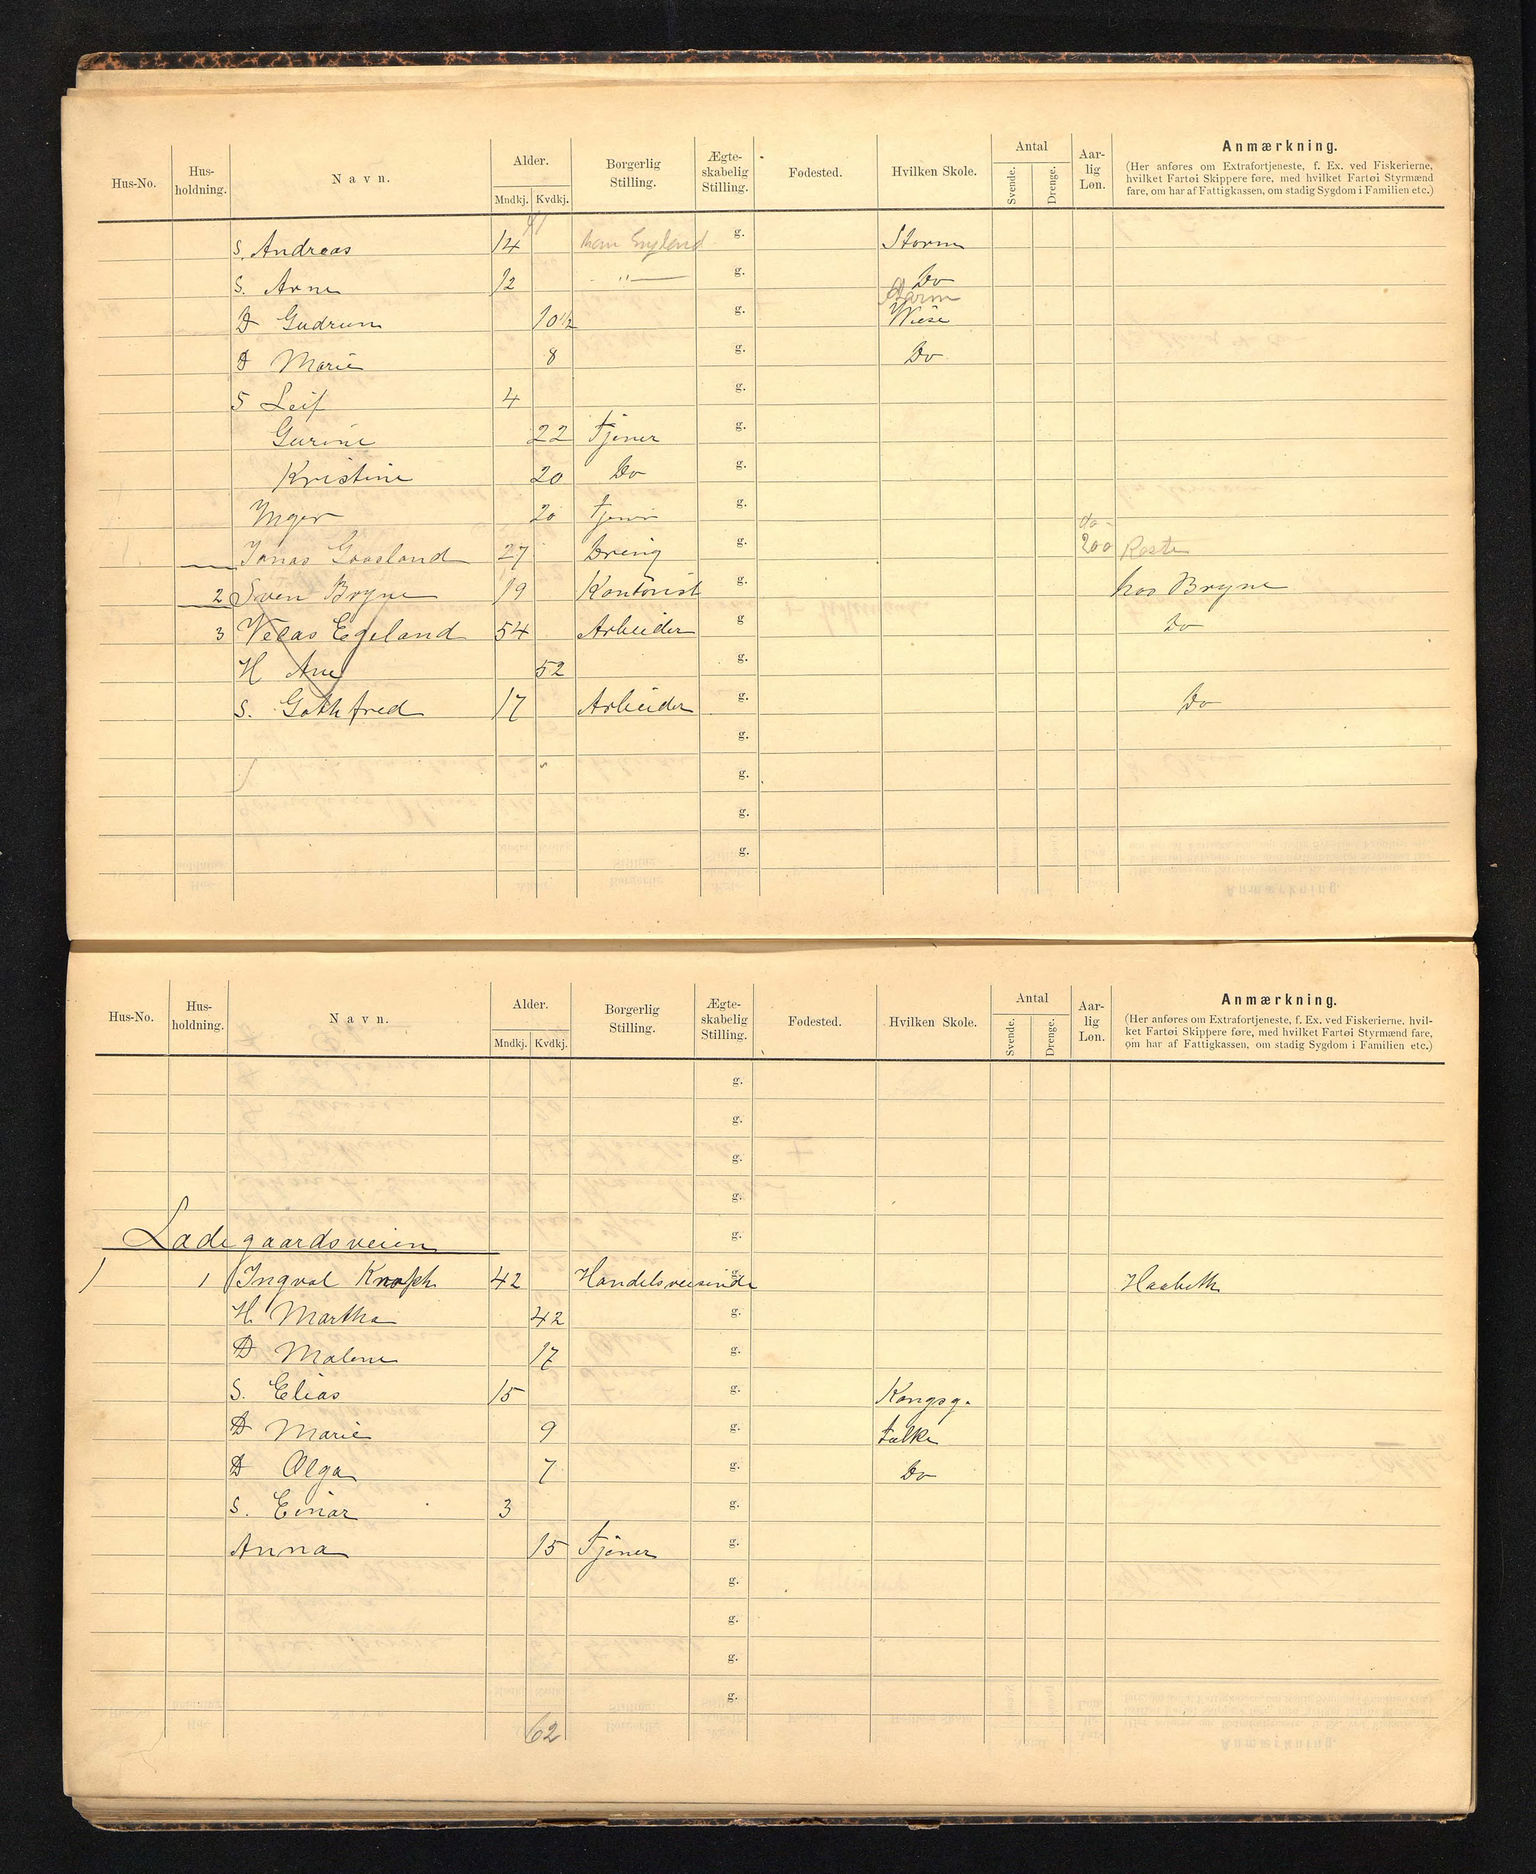 Hus-No. Hus-holdning. Navn. Alder. Mndkj. Kvdkj. Borgerlig Stilling. Ægte-skabelig Stilling. Fødested. Hvilken Skole. Antal Svende. Drenge. Aar-lig Løn. Anmærkning.
(Her anføres om Extrafortjeneste, f. Ex. ved Fiskerierne,
hvilket Fartøi Skippere føre, med hvilket Fartøi Styrmænd
fare, om har af Fattigkassen, om stadig Sygdom i Familien etc.)
S. Andreas 14 England g. Storm
S. Arne 12 " g. Do
Storm
D Gudrun 10 1/2 g. Wiese
D Marie 8 g. Do
S Leif 4 g.
Gurine 22 Tjener g.
Kristine 20 Do g.
Inger 20 Tjener g.
do
Jonas Goasland 27 Dreng g. 200
2 Sven Bryne 19 Kontorist g. hos Bryne
3 Egeland 54 Arbeider g Do
H Ane 52 g.
S. Gothfred 17 Arbeider g. Do
g.
g.
g.
g.
Hus-No. Hus-holdning. Navn. Alder. Mndkj. Kvdkj. Borgerlig Stilling. Ægte-skabelig Stilling. Fødested. Hvilken Skole. Antal Svende. Drenge. Aar-lig Løn. Anmærkning.
(Her anføres om Extrafortjeneste, f. Ex. ved Fiskerierne, hvil-
ket Fartøi Skippere føre, med hvilket Fartøi Styrmænd fare,
om har af Fattigkassen, om stadig Sygdom i Familien etc.)
g.
g.
g.
g.
Ladegaardsveien g.
1 1 Ingval Knoph 42 Handelsreisende g. Haabeth
H. Martha 42 g.
D Malene 17 g.
S. Elias 15 g. Kongsg.
D Marie 9 g. Folke
D Olga 7 g. Do
S. Einar 3 g.
Anna 15 Tjener g.
g.
g.
g.
g.
62